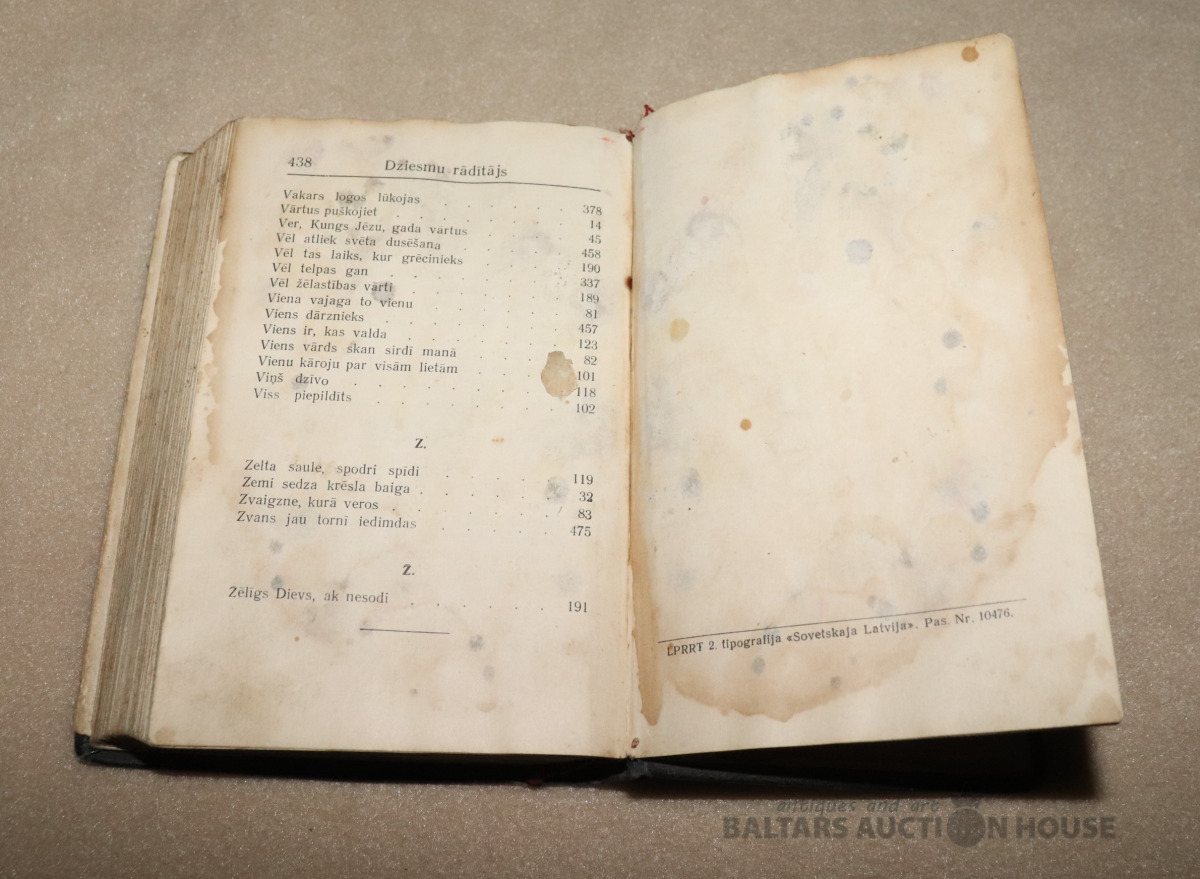 438 Dziesmu rādītājs
Vakars logos lūkojas . . . . . . 378
Vārtus puškojiet . . . . . . 14
Ver, Kungs Jēzu, gada vārtus . . . . 45
Vēl atliek svēta dusēšana . . . . 458
Vēl tas laiks, kur grēcinieks . . . . 190
Vēl telpas gan . . . . . . . 337
Vēl žēlastības vārti . . . . . . 189
Viena vajaga to vienu . . . . . . 81
Viens dārznieks . . . . . . . 457
Viens ir, kas valda . . . . . . 123
Viens vārds skan sirdī manā . . . . 82
Vienu kāroju par visām lietām . . . . 101
Viņš dzīvo . . . . . . . 118
Viss piepildīts . . . . . . . 102
Z.
Zelta saule, spodri spīdi . . . . . 119
Zemi sedza krēsla baiga . . . . . 32
Zvaigzne, kurā veros . . . . . . 83
Zvans jau tornī iedimdas . . . . . 475
Ž.
Žēlīgs Dievs, ak nesodi . . . . . . 191
LPRRT 2. tipografija «Sovetskaja Latvija». Pas. Nr. 10476.
antiques and art
BALTARS AUCTION HOUSE